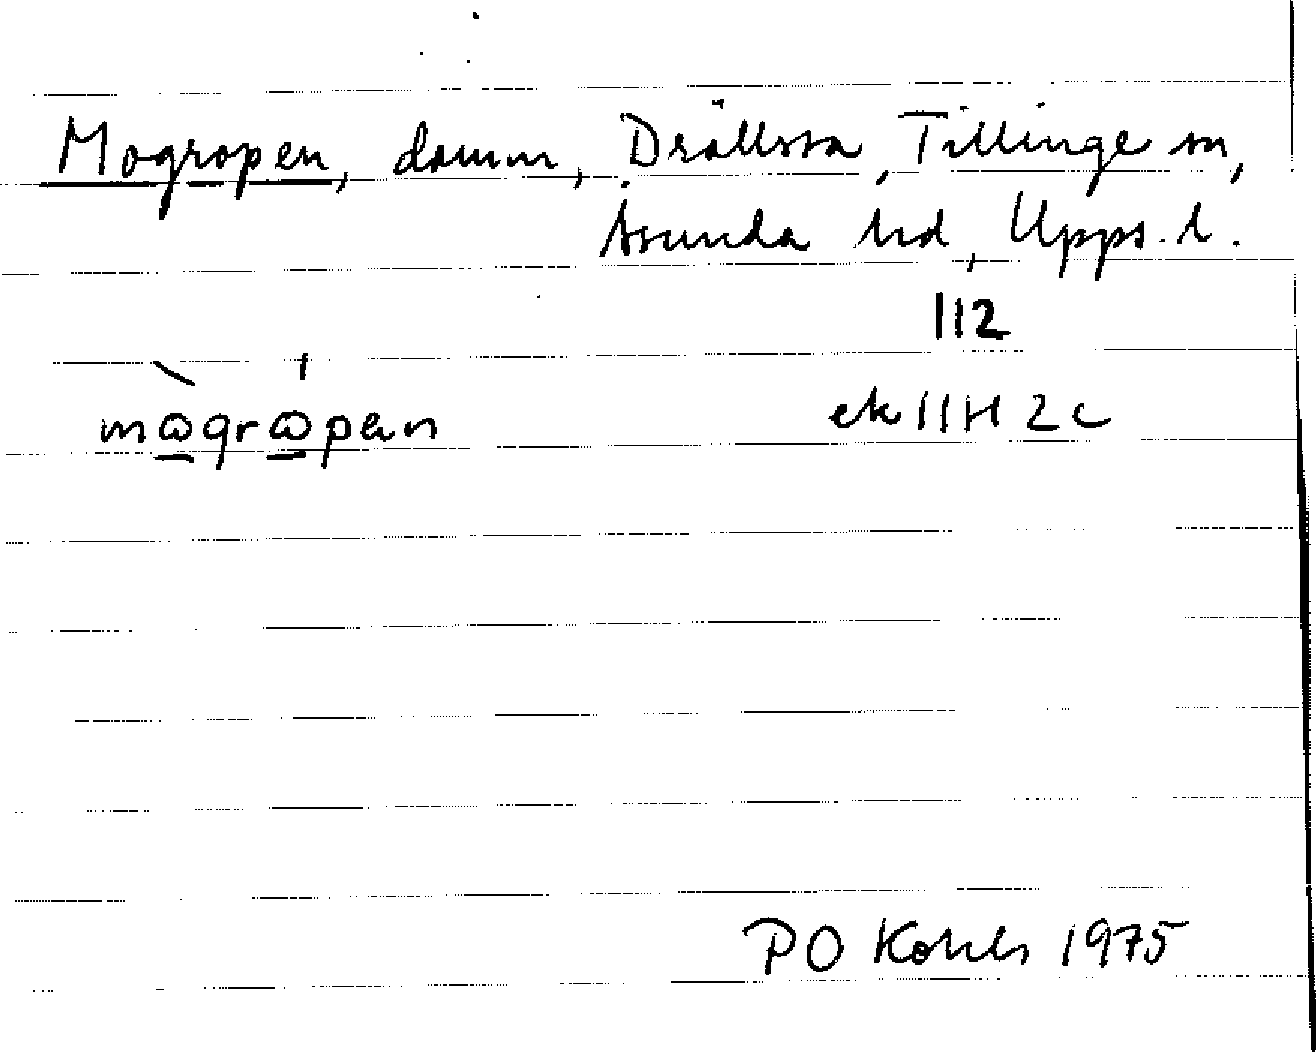 Mogropen, damm, Drällsta, Tillinge sn,
Åsunda hd, Upps. l.
112
mògrópen
ek 11H 2c
1975